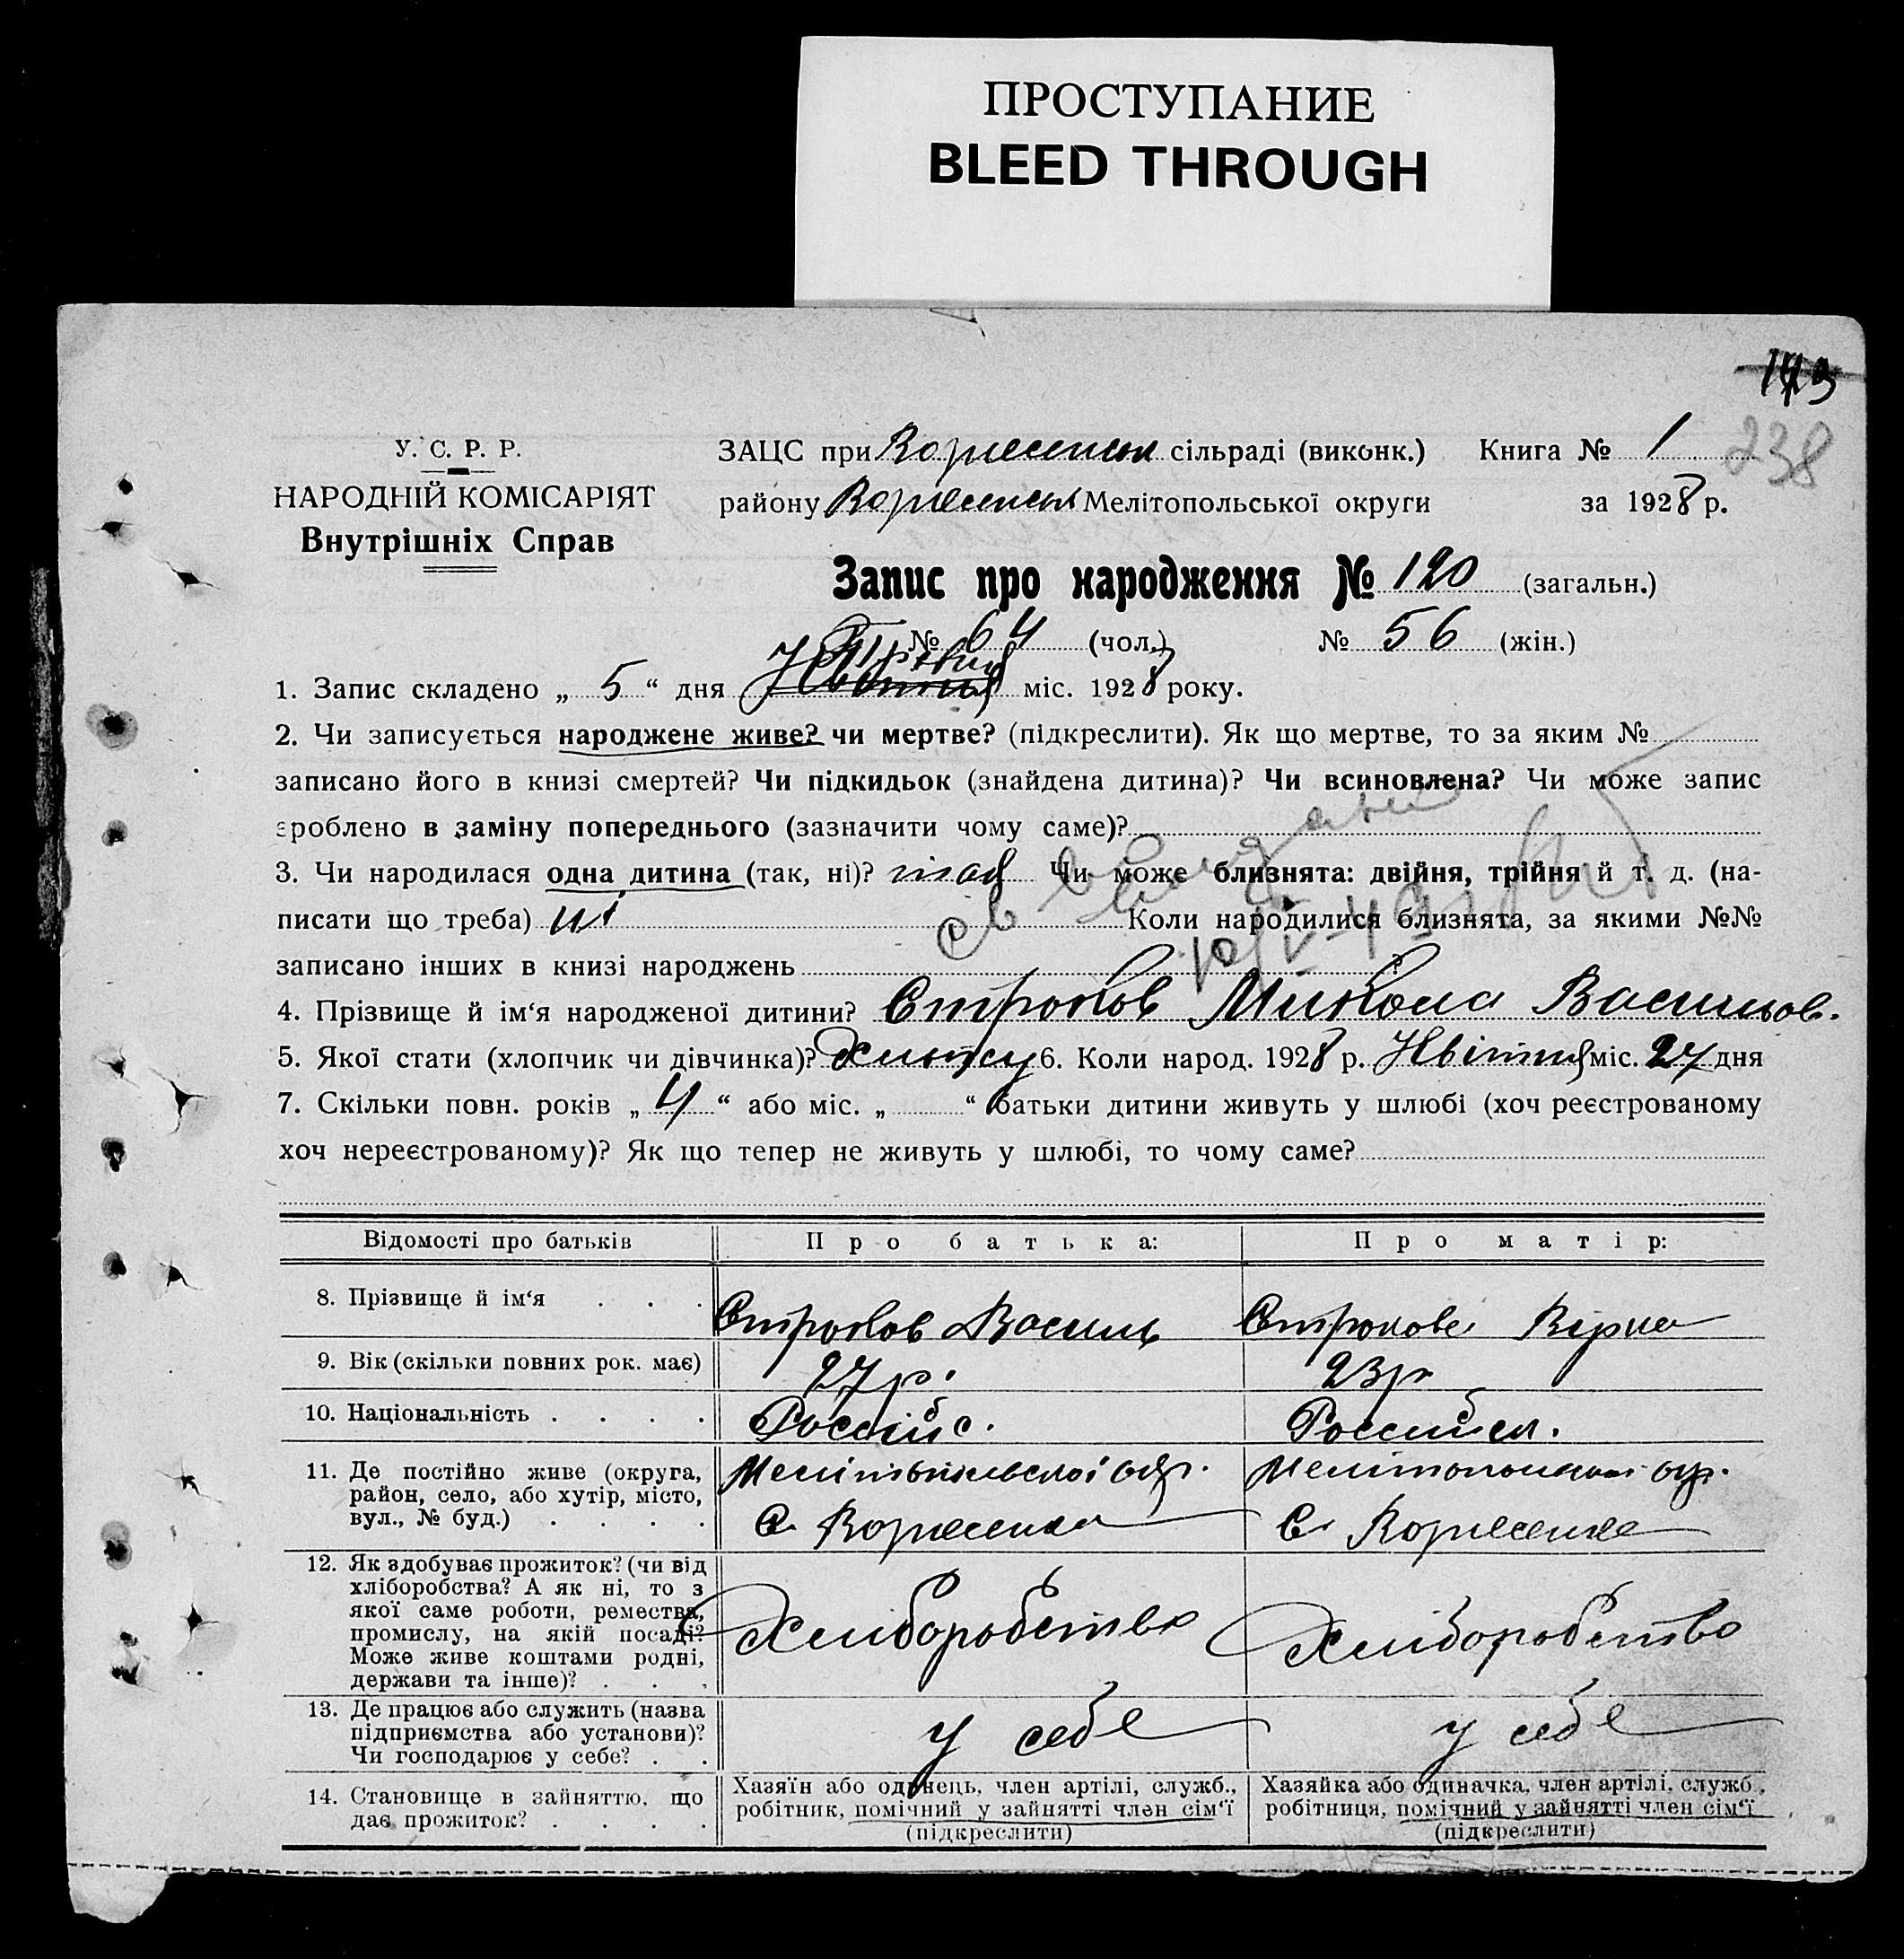 ПРОСТУПАНИЕ
BLEED THROUGH
143
238
У. С. Р. Р.
НАРОДНІЙ КОМІСАРІЯТ
Внутрішніх Справ
ЗАЦС при сільраді (виконк.) Книга № 1
району Мелітопольської округи за 1928 р.
Запис про народження № 120 (загальн.)
№ 64 (чол.) № 56 (жін.)
1. Запис складено „ 5 “ дня міс. 1928 року.
2. Чи записується народжене живе? чи мертве? (підкреслити). Як що мертве, то за яким №
записано його в книзі смертей? Чи підкидьок (знайдена дитина)? Чи всиновлена? Чи може запис
зроблено в заміну попереднього (зазначити чому саме)?
3. Чи народилася одна дитина (так, ні)? так Чи може близнята: двійня, трійня й т. д. (на-
писати що треба) ні Коли народилися близнята, за якими №№
записано інших в книзі народжень ?
4. Прізвище й ім‘я народженої дитини? Строков Микола Васильов.
5. Якої стати (хлопчик чи дівчинка)? 6. Коли народ. 1928 р. Квітня міс. 27 дня
7. Скільки повн. років „ 4 “ або міс. „ “ батьки дитини живуть у шлюбі (хоч реєстрованому
хоч нереєстрованому)? Як що тепер не живуть у шлюбі, то чому саме?
Відомості про батьків Про батька: Про матір:
8. Прізвище й ім‘я . . . Строков Василь Строкова
9. Вік (скільки повних рок. має) 27 р. 23 р
10. Національність . . . . Россійс. Российск.
11. Де постійно живе (округа, район, село, або хутір, місто, вул., № буд.) . . . . Мелітопільської окр. Мелитопольской окр.
с. с.
12. Як здобуває прожиток? (чи від хліборобства? А як ні, то з якої саме роботи, ремества, промислу, на якій посаді? Може живе коштами родні, держави та інше)? . . . Хліборобство Хліборобство
13. Де працює або служить (назва підприємства або установи)? Чи господарює у себе? . . у себе у себе
14. Становище в зайняттю, що дає прожиток? . . . . Хазяїн або одинець, член артілі, служб., робітник, помічний у зайнятті член сім‘ї (підкреслити) Хазяйка або одиначка, член артілі, служб., робітниця, помічний у зайнятті член сім‘ї (підкреслити)